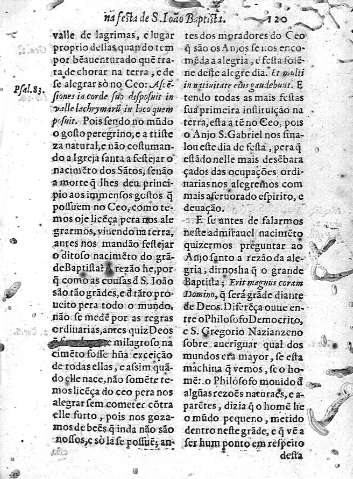 na festa de S. Ioão Baptista. 120
valle de lagrimas, e lugar
proprio dellas quando tem
por bẽaventurado quẽ tra-
ta de chorar na terra, e de
se alegrar sò no Ceo: Ascẽ-
Psal. 83.
siones in corde suo disposuit in
valle lachrymarũ in loco quem
posuit. Pois sendo no mũdo
o gosto peregrino, e a triste
za natural, e não costuman-
do a Igreja santa a festejar o
nacimẽto dos Sãtos, senão
a morte q̃ lhes deu princi-
pio aos immensos gostos q̃
possuem no Ceo, como te-
mos oje licẽça pera nos ale
grarmos, vivendo na terra,
antes nos mandão festejar
o ditoso nacimẽto do grã-
de Baptista? A rezão he, por
q̃ como as cousas d̃ S. Ioão
são tão grãdes, e d̃ tãto pro-
ueito pera todo o mundo,
não se medẽ por as regras
ordinarias, antes quiz Deos
milagroso na
cimẽto fosse hũa exceição
de todas ellas, e assim quã-
do elle nace, não somẽte te-
mos licẽça do ceo pera nos
alegrar sem cometer cõtra
elle furto, pois nos gozà-
mos de beẽs que inda não são
nossos, e sò là se possuẽ; an-
tes dos moradores do Ceo
q̃ são os Anjos se nos enco-
mẽda a alegria, e festa solẽ-
ne deste alegre dia. Et multi
in nativitate eius gaudebunt. E
tendo todas as mais festas
sua primeira instituição na
terra, esta a tẽ no Ceo, pois
o Anjo S. Gabriel nos sina-
lou este dia de festa, pera q̃
estãdo nelle mais desẽbara
çados das ocupações ordi-
narias nos alegremos com
mais afervorado espirito, e
devação.
E se antes de falarmos
neste admiravel nacimẽto
quizermos preguntar ao
Anjo santo a rezão da ale-
gria, dirnosha q̃ o grande
Baptista; Erit magnus coram
Domino, q̃ serà grãde diante
de Deos. Diferẽça ouue en-
tre o Philosofo Democrito,
e S. Gregorio Nazianzeno
sobre aueriguar qual dos
mundos era mayor, se esta
machina q̃ vemos, se o ho-
mẽ: o Philosofo movido d̃
algũas rezões naturaes, e a-
parẽtes, dizia q̃ o homẽ he
o mũdo pequeno, metido
dentro neste grãde, e q̃ vẽ a
ser hum ponto em respeito
desta